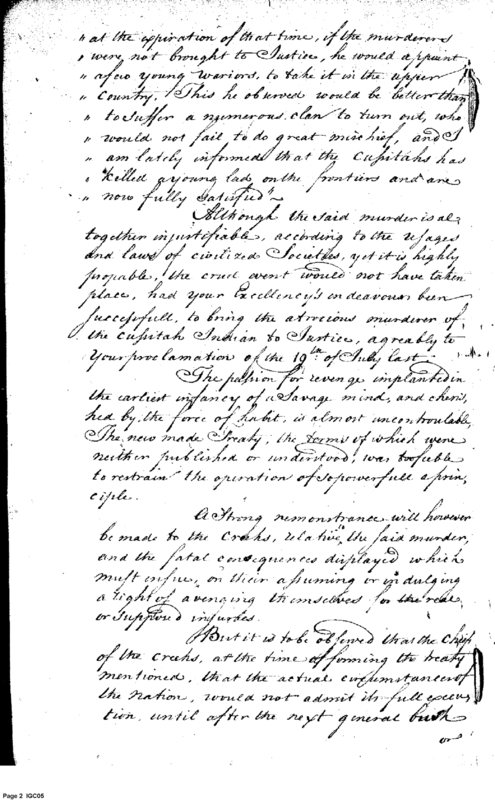 " at the expiration of that time, if the murderers
" were not brought to Justice, he would appoint
" afew young wariors, to take it in the upper
" Country. This he observed would be better than
" to suffer a numerous clan to turn out, who
" would not fail to do great mischief, and I
" am lately informed that the Cusitahs has
" killed a young lad, on the frontiers and are
" now fully satisfied"
Although the said murder is al-
together injustifiable, according to the usages
and laws of civilized Societies, yet it is highly
propable, the cruel event would not have taken
place, had your Excellency's endeavours been
successfull, to bring the atrocious murderer of
the Cusitah Indian to Justice, agreably to
Your proclamation of the 19th of July last
The passion for revenge implanted in
the earliest infancy of a Savage mind, and cheris,
hed by the force of habit, is almost uncontroulable,
The new made Treaty, the terms of which were
neither published or understood, was to feeble
to restrain the operation of so powerfull a prin
ciple.
A Strong remonstrance will however
be made to the Creeks, relative, the said murder,
and the fatal consequences displayed which
must ensue, on their assuming or indulging
a right of avenging themselves for the real
or supposed injuries.
But it is to be observed that the Chiefs
of the Creeks, at the time of forming the treaty
mentioned, that the actual circumstances of
the Nation, would not admit its full execu
tion, until after the next general busk
or
Page 2 IGC05